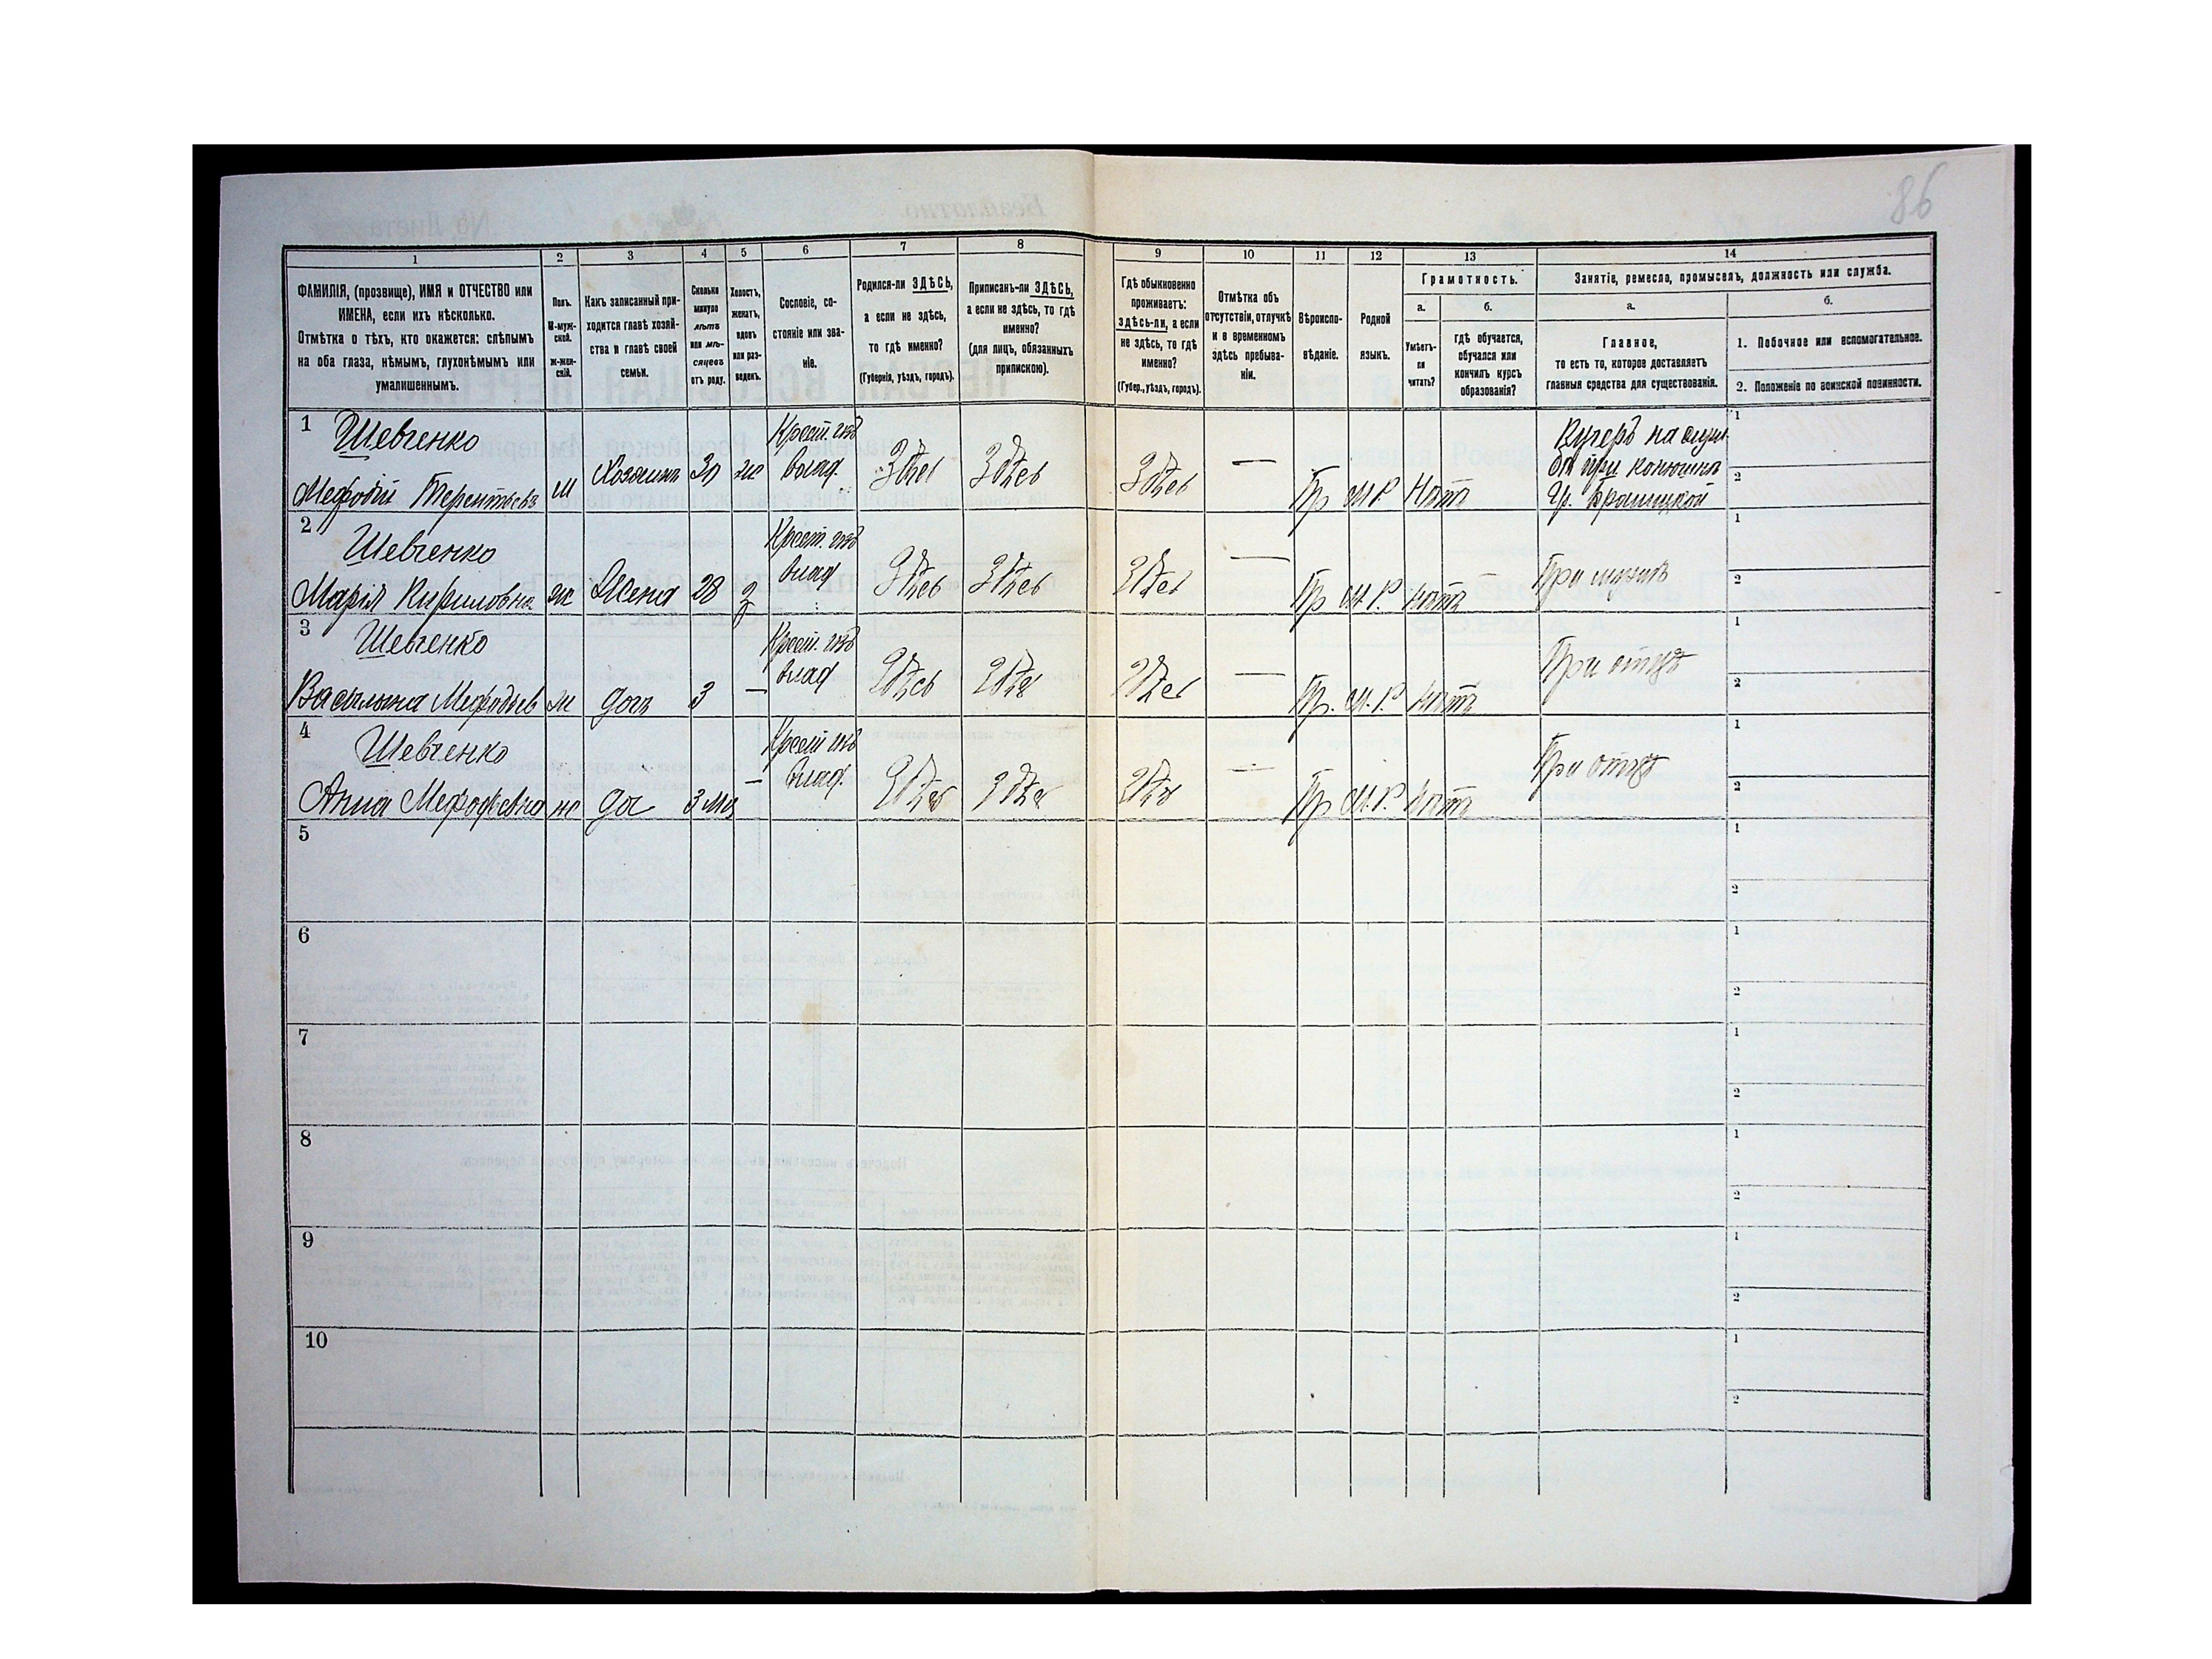 86
1
2
3
4
5
6
7
8
9
10
11
12
13
14
ФАМИЛІЯ, (прозвище), ИМЯ и ОТЧЕСТВО или
ИМЕНА, если ихъ нѣсколько.
Отмѣтка о тѣхъ, кто окажется: слѣпымъ
на оба глаза, нѣмымъ, глухонѣмымъ или
умалишеннымъ.
Полъ.
М-муж-
ской.
ж-жен-
скій.
Какъ записанный при-
ходится главѣ хозяй-
ства и главѣ своей
семьи.
Сколько
минуло
лѣтъ
или мѣ-
сяцевъ
отъ роду.
Холостъ,
женатъ,
вдовъ
или раз-
веденъ.
Сословіе, со-
стояніе или зва-
ніе.
Родился-ли ЗДѢСЬ,
а если не здѣсь,
то гдѣ именно?
(Губернія, уѣздъ, городъ).
Приписанъ-ли ЗДѢСЬ,
а если не здѣсь, то гдѣ
именно?
(для лицъ, обязанныхъ
припискою).
Гдѣ обыкновенно
проживаетъ:
здѣсь-ли, а если
не здѣсь, то гдѣ
именно?
(Губер., уѣздъ, городъ).
Отмѣтка объ
отсутствіи, отлучкѣ
и о временномъ
здѣсь пребыва-
ніи.
Вѣроиспо-
вѣданіе.
Родной
языкъ.
Грамотность.
а.
Умѣетъ-
ли
читать?
б.
гдѣ обучается,
обучался или
кончилъ курсъ
образованія?
Занятіе, ремесло, промыселъ, должность или служба.
а.
Главное,
то есть то, которое доставляетъ
главныя средства для существованія.
б.
1. Побочное или вспомогательное.
2. Положеніе по воинской повинности.
1 Шевченко
Мефодій Терентьевъ
м
Хозяинъ
ж
Крест. изъ
влад.
Здѣсь
Здѣсь
Здѣсь
—
Пр
М Р
Нѣтъ
Кучеръ на служ
бѣ при конюшнѣ
Гр. Браницкой
1
2
2 Шевченко
Марія Кириловна
ж
Жена
28
з
Крест. изъ
влад
Здѣсь
Здѣсь
Здѣсь
—
Пр
М Р.
Нѣтъ
При мужѣ
1
2
3 Шевченко
Василина Мефодьев
ж
дочь
3
—
Крест. изъ
влад
Здѣсь
Здѣсь
Здѣсь
—
Пр.
М. Р.
Нѣтъ
При отцѣ
1
2
4 Шевченко
Анна Мефодьевна
ж
до
3 мц
—
Крест изъ
влад.
Здѣсь
Здѣсь
Здѣсь
—
Пр
М. Р.
Нѣтъ
При отцѣ
1
2
5
1
2
6
1
2
7
1
2
8
1
2
9
1
2
10
1
2